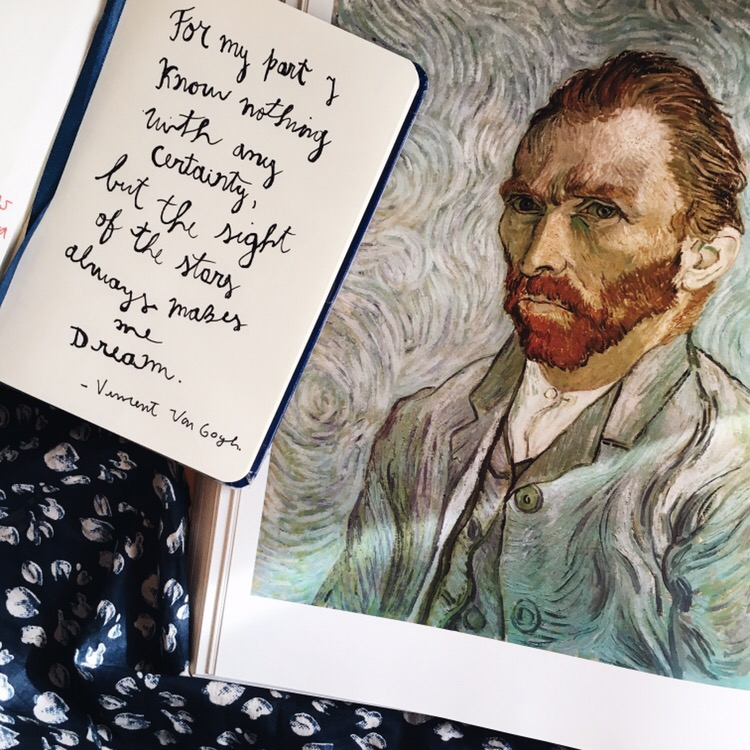 For my part I
Know nothing
with any
Certainty,
but the sight
of the stars
always makes
me
Dream.
- Vincent Van Gogh.